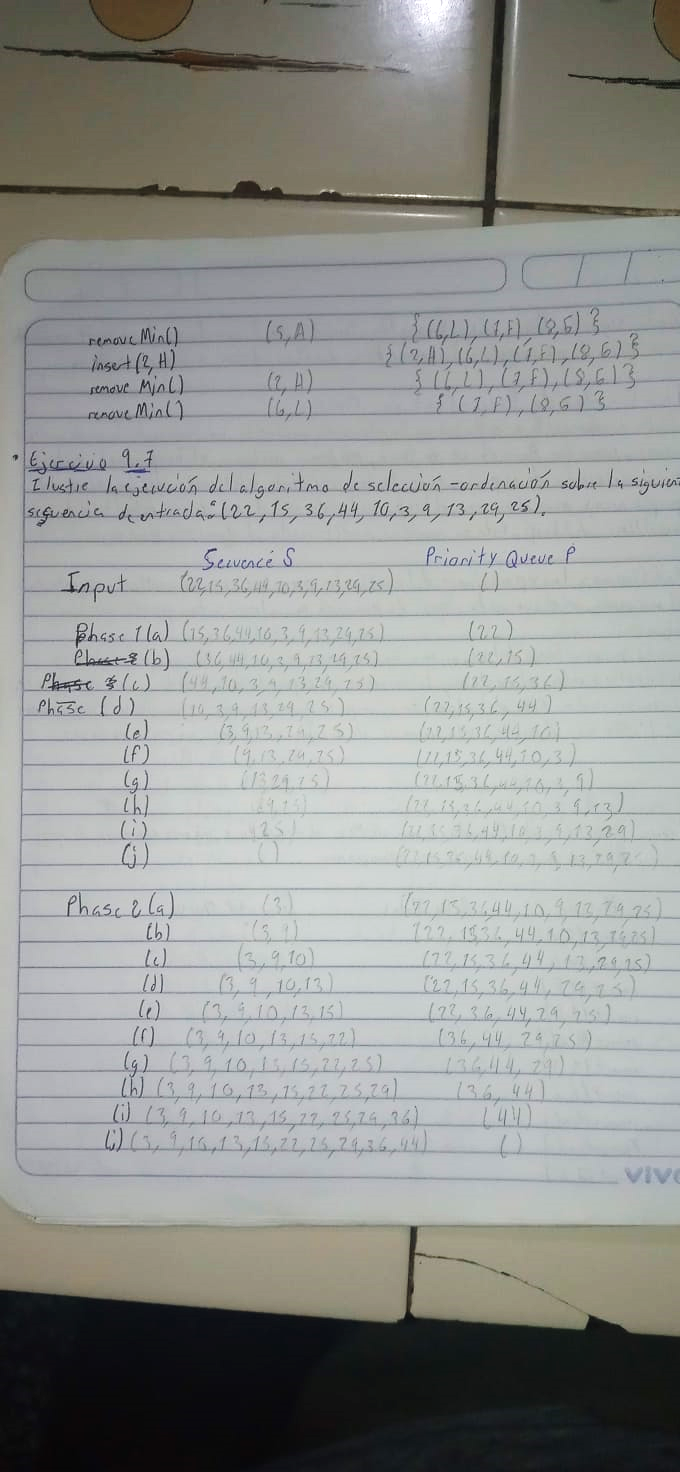 remove Min() (5,A) {(6,L),(7,F),(8,G)}
insert (2,H) {(2,H),(6,L),(7,F),(8,G)}
remove Min() (2,H) {(6,L),(7,F),(8,G)}
remove Min() (6,L) {(7,F),(8,G)}
• Ejercicio 9.7
Ilustre la ejecución del algoritmo de selección-ordenación sobre la siguien
secuencia de entrada: (22,15,36,44,10,3,9,13,29,25).
Secuence S Priority Queue P
Input (22,15,36,44,10,3,9,13,29,25) ()
Phase 1 (a) (15,36,44,10,3,9,13,29,25) (22)
(b) (36,44,10,3,9,13,29,25) (22,15)
(c) (44,10,3,9,13,29,25) (22,15,36)
Phase (d) (10,3,9,13,29,25) (22,15,36,44)
(e) (3,9,13,29,25) (22,15,36,44,10)
(f) (9,13,29,25) (22,15,36,44,10,3)
(g) (13,29,25) (22,15,36,44,10,3,9)
(h) (22,15,36,44,10,3,9,13)
(i) (25) (22,15,36,44,10,3,9,13,29)
(j) () (22,15,36,44,10,3,9,13,29,25)
Phase 2 (a) (3) (22,15,36,44,10,9,13,29,25)
(b) (3,9) (22,15,36,44,10,13,29,25)
(c) (3,9,10) (22,15,36,44,13,29,25)
(d) (3,9,10,13) (22,15,36,44,29,25)
(e) (3,9,10,13,15) (22,36,44,29,25)
(f) (3,9,10,13,15,22) (36,44,29,25)
(g) (3,9,10,13,15,22,25) (36,44,29)
(h) (3,9,10,13,15,22,25,29) (36,44)
(i) (3,9,10,13,15,22,25,29,36) (44)
(j) (3,9,10,13,15,22,25,29,36,44) ()